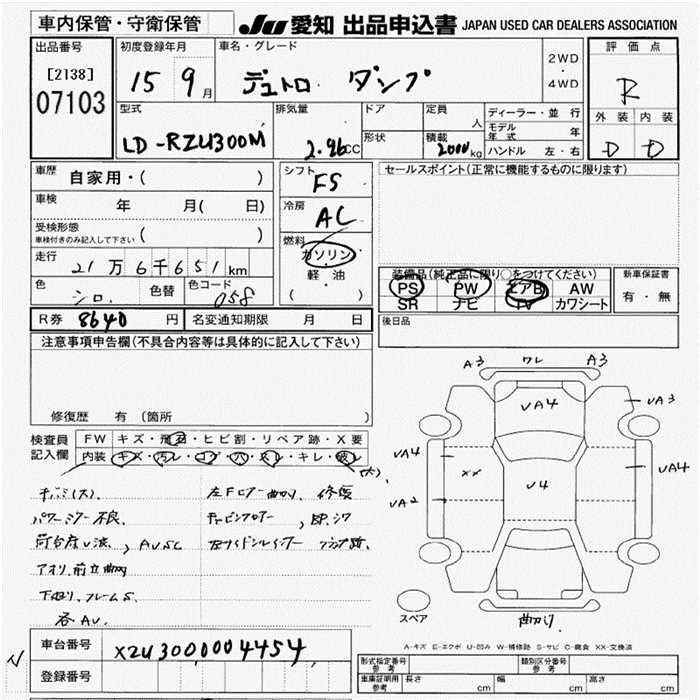 車内保管・守衛保管
JU 愛知 出品申込書 JAPAN USED CAR DEALERS ASSOCIATION
出品番号
[2138]
07103
初度登録年月
15 9月
車名・グレード
デュトロ ダンプ
2WD
・
4WD
評価点
R
外装 内装
D D
型式
LD-RZU300M
排気量
2.96cc
ドア
形状
定員
人
積載
2000kg
ディーラー・並行
モデル年式 年
ハンドル 左・右
車歴
自家用・( )
車検
年 月( 日)
受検形態
車検付きのみ記入して下さい ( )
走行
21万6千651km
色
シロ
色替
色コード
058
シフト
F5
冷房
AC
燃料
ガソリン
軽油
( )
セールスポイント(正常に機能するものに限ります)
装備品(純正品に限り○をつけてください)
PS PW エアB AW
SR ナビ TV カワシート
新車保証書
有・無
R券 8640 円
名変通知期限 月 日
後日品
注意事項申告欄(不具合内容等は具体的に記入して下さい)
修復歴 有(箇所
検査員
記入欄
FW キズ・飛石・ヒビ割・リペア跡・X要
内装 キズ・汚レ・コゲ・穴・スレ・キレ・破レ
(大)
パワーミラー不良
左Fフロアー曲り、修復
荷台床凹波、AU5C
アオリ、前立曲り
各AU.
A3 ワレ A3
UA4
UA3
UA4
XX
U4
UA4
UA2
スペア
曲がり
A-キズ E-エクボ U-凹み W-補修跡 S-サビ C-腐食 XX-交換済
車台番号
XZU3000004454
登録番号
形式指定番号
参考
類別区分番号
参考
車庫証明用
参考
長さ cm
幅 cm
高さ cm